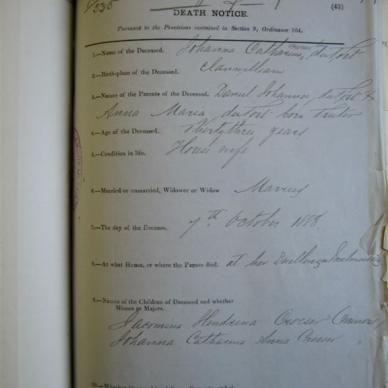 535
(43)
DEATH NOTICE.
Pursuant to the Provisions contained in Section 9, Ordinance 104.
1.—Name of the Deceased. Johanna Catharina du Toit
2.—Birth-place of the Deceased. Clanwilliam
3.—Names of the Parents of the Deceased. Daniel Johannes du Toit &
Anna Maria du Toit born
4.—Age of the Deceased. Thirty three years
5.—Condition in life. House wife
6.—Married or unmarried, Widower or Widow Married
7.—The day of the Decease. 7th October 1888
8.—At what House, or where the Person died. at her Dwelling
9.—Names of the Children of Deceased and whether
Minors or Majors.
Jacomina Hendrina (Minor)
Johanna Catharina Anna